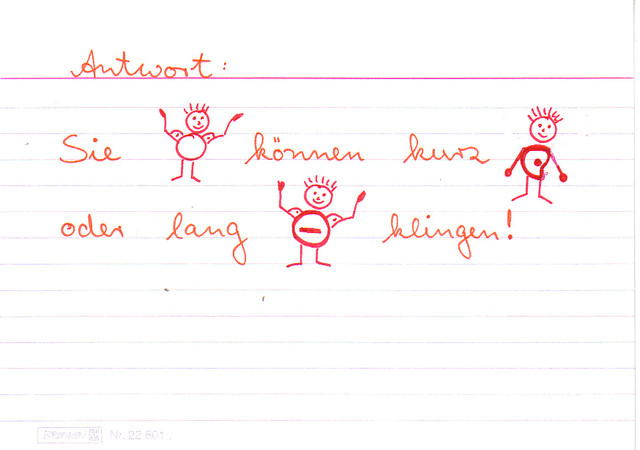 Antwort:
Sie können kurz
oder lang klingen!
BRUNNEN Nr. 22 601